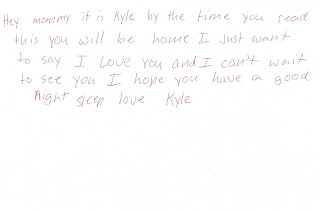 Hey mommy it is Kyle by the time you read
this you will be home I Just want
to say I Love You and I can't wait
to see you I hope you have a good
Night sleep love Kyle